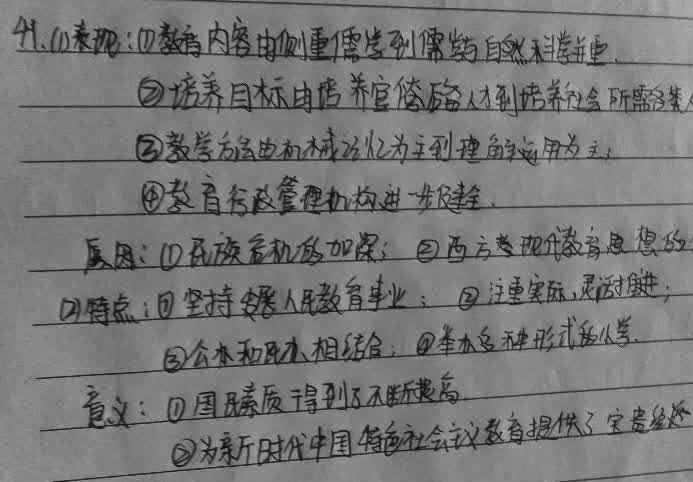 41.(1)表现:①教育内容由侧重儒学到儒学与自然科学并重.
②培养目标由培养官僚后备人才到培养社会所需各类人
③教学方法由机械记忆为主到理解运用为主;
④教育行政管理机构进一步健全.
原因:①民族危机的加深; ②西方近现代教育思想的
(2)特点:①坚持发展人民教育事业; ②注重实际,灵活推进;
③公办和民办相结合; ④举办多种形式的小学.
意义:①国民素质得到了不断提高
②为新时代中国特色社会主义教育提供了宝贵经验